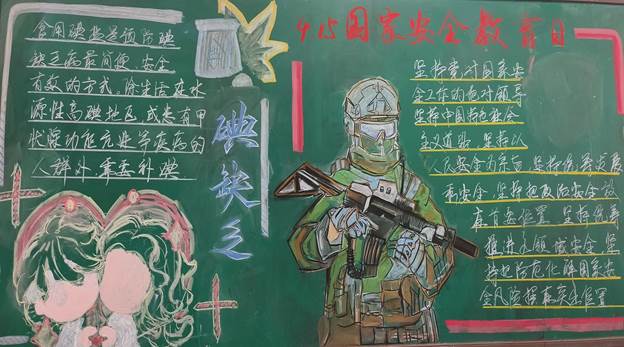 食用碘盐是预防碘
缺乏病最简便、安全
有效的方式。除生活在水
源性高碘地区，或患有甲
状腺功能亢进等疾病的
人群外，都要补碘
碘缺乏
4.15国家安全教育日
坚持党对国家安
全工作的绝对领导
坚持中国特色社会
主义道路，坚持以
人民安全为宗旨，坚持统筹发展
和安全，坚持把政治安全放
在首要位置，坚持统筹
推进各领域安全，坚
持把防范化解国家安
全风险摆在突出位置